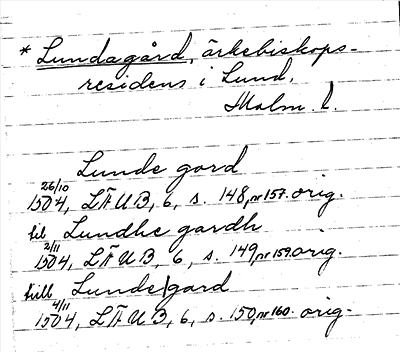 * Lundagård, ärkebiskops-
residens i Lund.
Malm. l.
Lunde gord
26/10 1504, LÄUB, 6, s. 148, nr 157. orig.
til Lundhe gardh
2/11 1504, LÄUB, 6, s. 149, nr 159. orig.
till Lunde|gard
4/11 1504, LÄUB, 6, s. 150, nr 160. orig.